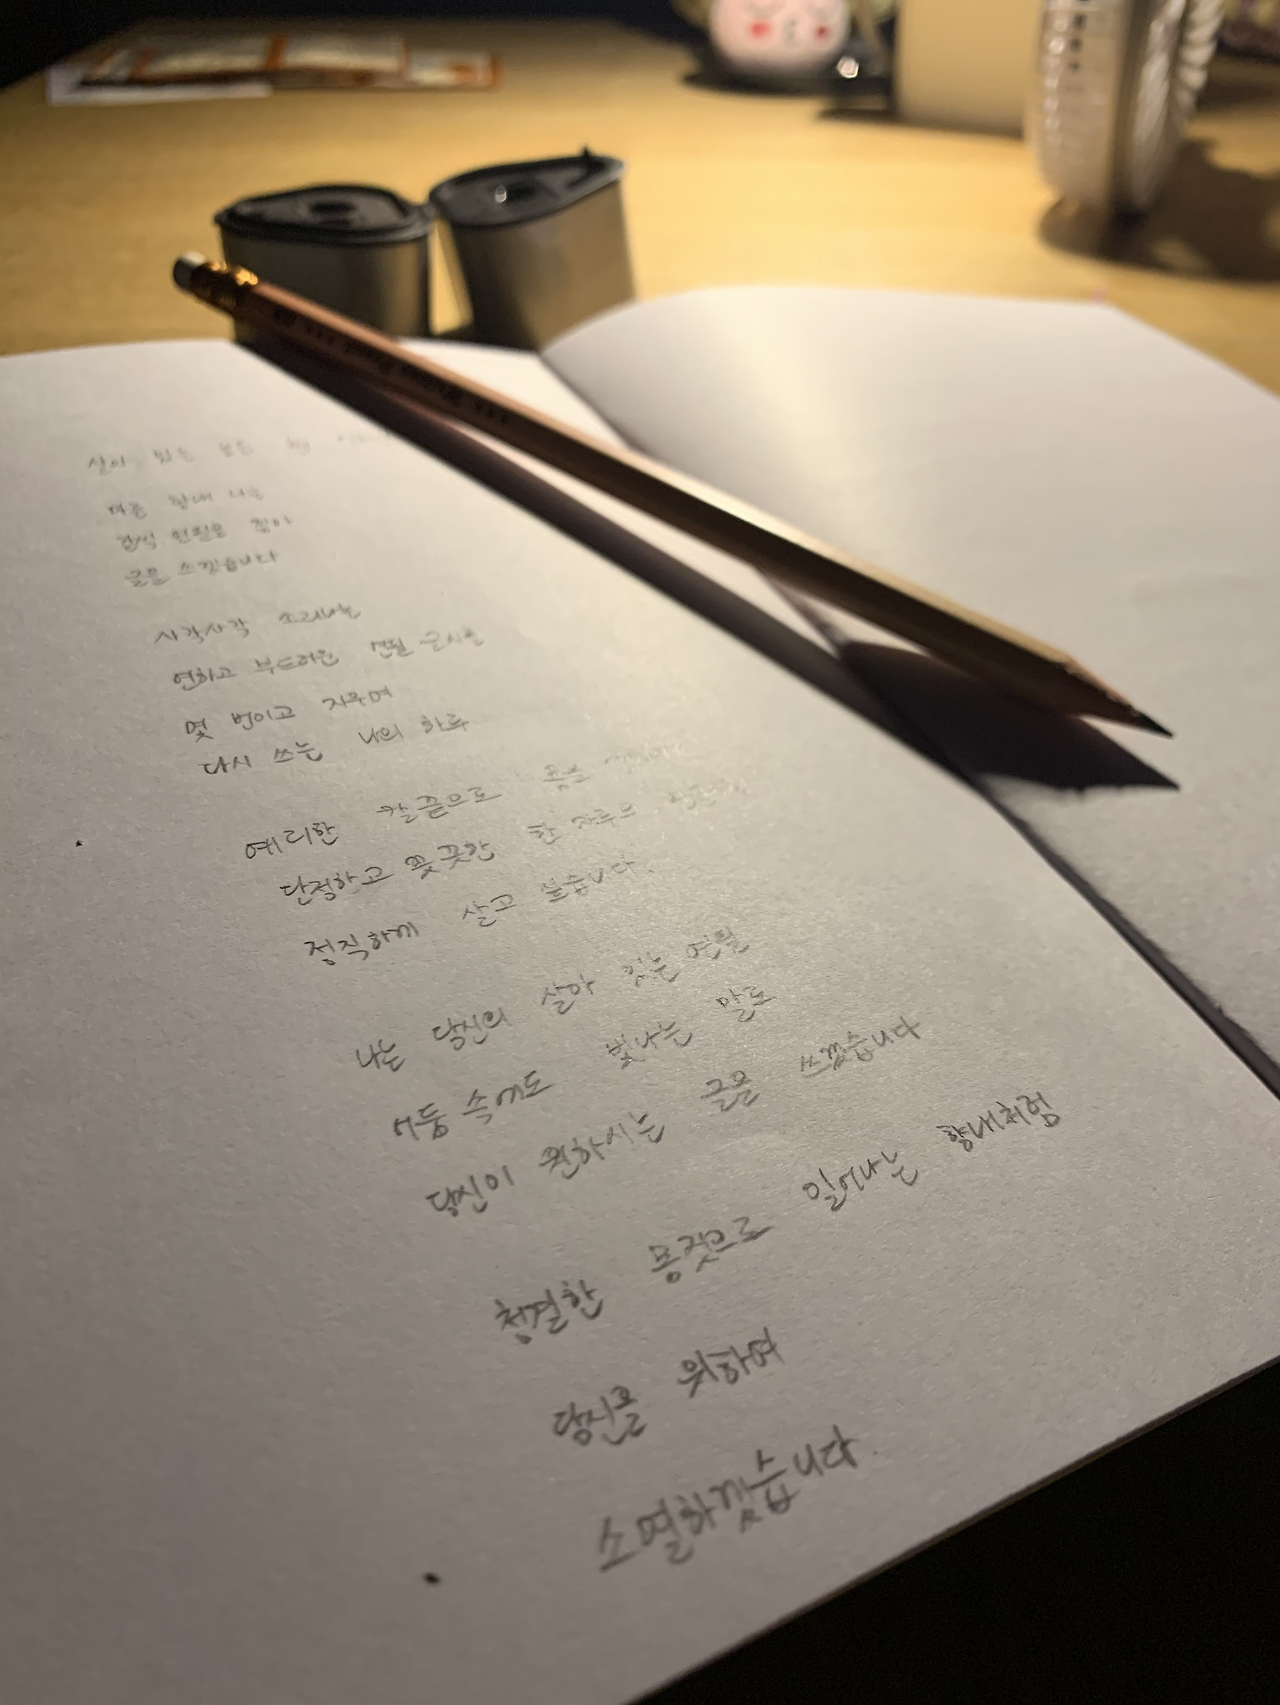 살아 있는 모든
마른 향내 나는
갈색 연필을 깎아
글을 쓰겠습니다
사각사각 소리나는
연하고 부드러운 연필 글씨를
몇 번이고 지우며
다시 쓰는 나의 하루
예리한 칼끝으로 몸을
단정하고 꼿꼿한 한 자루의 연필처럼
정직하게 살고 싶습니다.
나는 당신의 살아 있는 연필
어둠 속에도 빛나는 말로
당신이 원하시는 글을 쓰겠습니다
청결한 몸짓으로 일어나는 향내처럼
당신을 위하여
소멸하겠습니다.